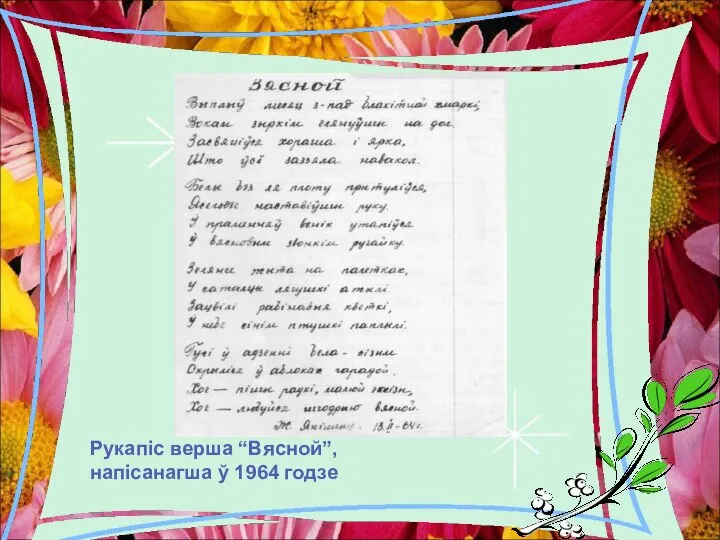 Вясной
Выплыў месяц з-пад блакітнай хмаркі,
Вокам зыркім глянуўшы на дол.
Засвяціўся хораша і ярка,
Што ўсё заззяла навакол.
Белы бэз ля плоту прытуліўся,
Яселцы наставіўшы руку.
І праменняў венік утапіўся
Ў вясновым звонкім ручайку.
Зелянее жыта на палетках,
У сажалцы лягушкі ажылі.
Зацвілі рабінавыя кветкі,
У небе сінім птушкі паплылі.
Гусі ў адзенні бела-сізым
Скрыліся ў аблоках чарадой.
Хоч — пішы радкі, малюй эскізы,
Хоч — любуйся шчодраю вясной.
Ж. Янішчыц 13.II-64г.
Рукапіс верша “Вясной”,
напісанагша ў 1964 годзе